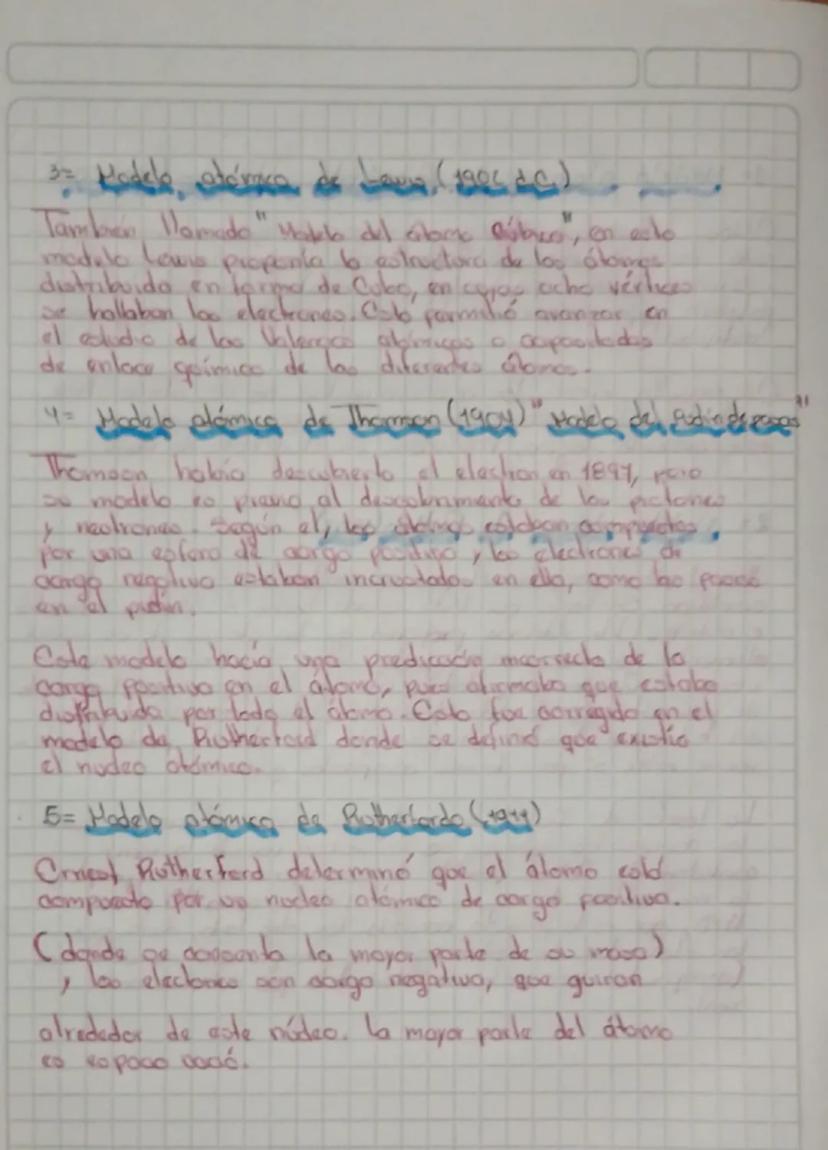 3= Modelo atómico de Lewis (190 d.C)
También llamado "Modelo del átomo Cúbico", en este
modelo Lewis proponía la estructura de los átomos
distribuido en forma de Cubo, en cuyos ocho vértices
se hallaban los electrones. Esto permitió avanzar en
el estudio de las Valencias atómicas o capacidades
de enlace químico de los diferentes átomos.
4= Modelo atómico de Thomson (1904) "Modelo del Pudin de pasas"
Thomson había descubierto el electron en 1897, pero
su modelo es previo al descubrimiento de los protones
y neutrones. Según el, los átomos estaban compuestos
por una esfera de carga positiva, los electrones de
carga negativa estaban incrustados en ella, como las pasas
en el pudin.
Este modelo hacía una predicción incorrecta de la
carga positiva en el átomo, pues afirmaba que estaba
distribuida por todo el átomo. Esto fue corregido en el
modelo de Rutherford donde se define que existio
el nucleo atómico.
5= Modelo atómico de Rutherfordo (1911)
Ernest Rutherford determinó que el átomo está
compuesto por un nucleo atómico de carga positiva.
(donde se concentra la mayor parte de su masa)
y los electrones con carga negativa, que guiran
alrededor de este núcleo. La mayor parte del átomo
es espacio vació.